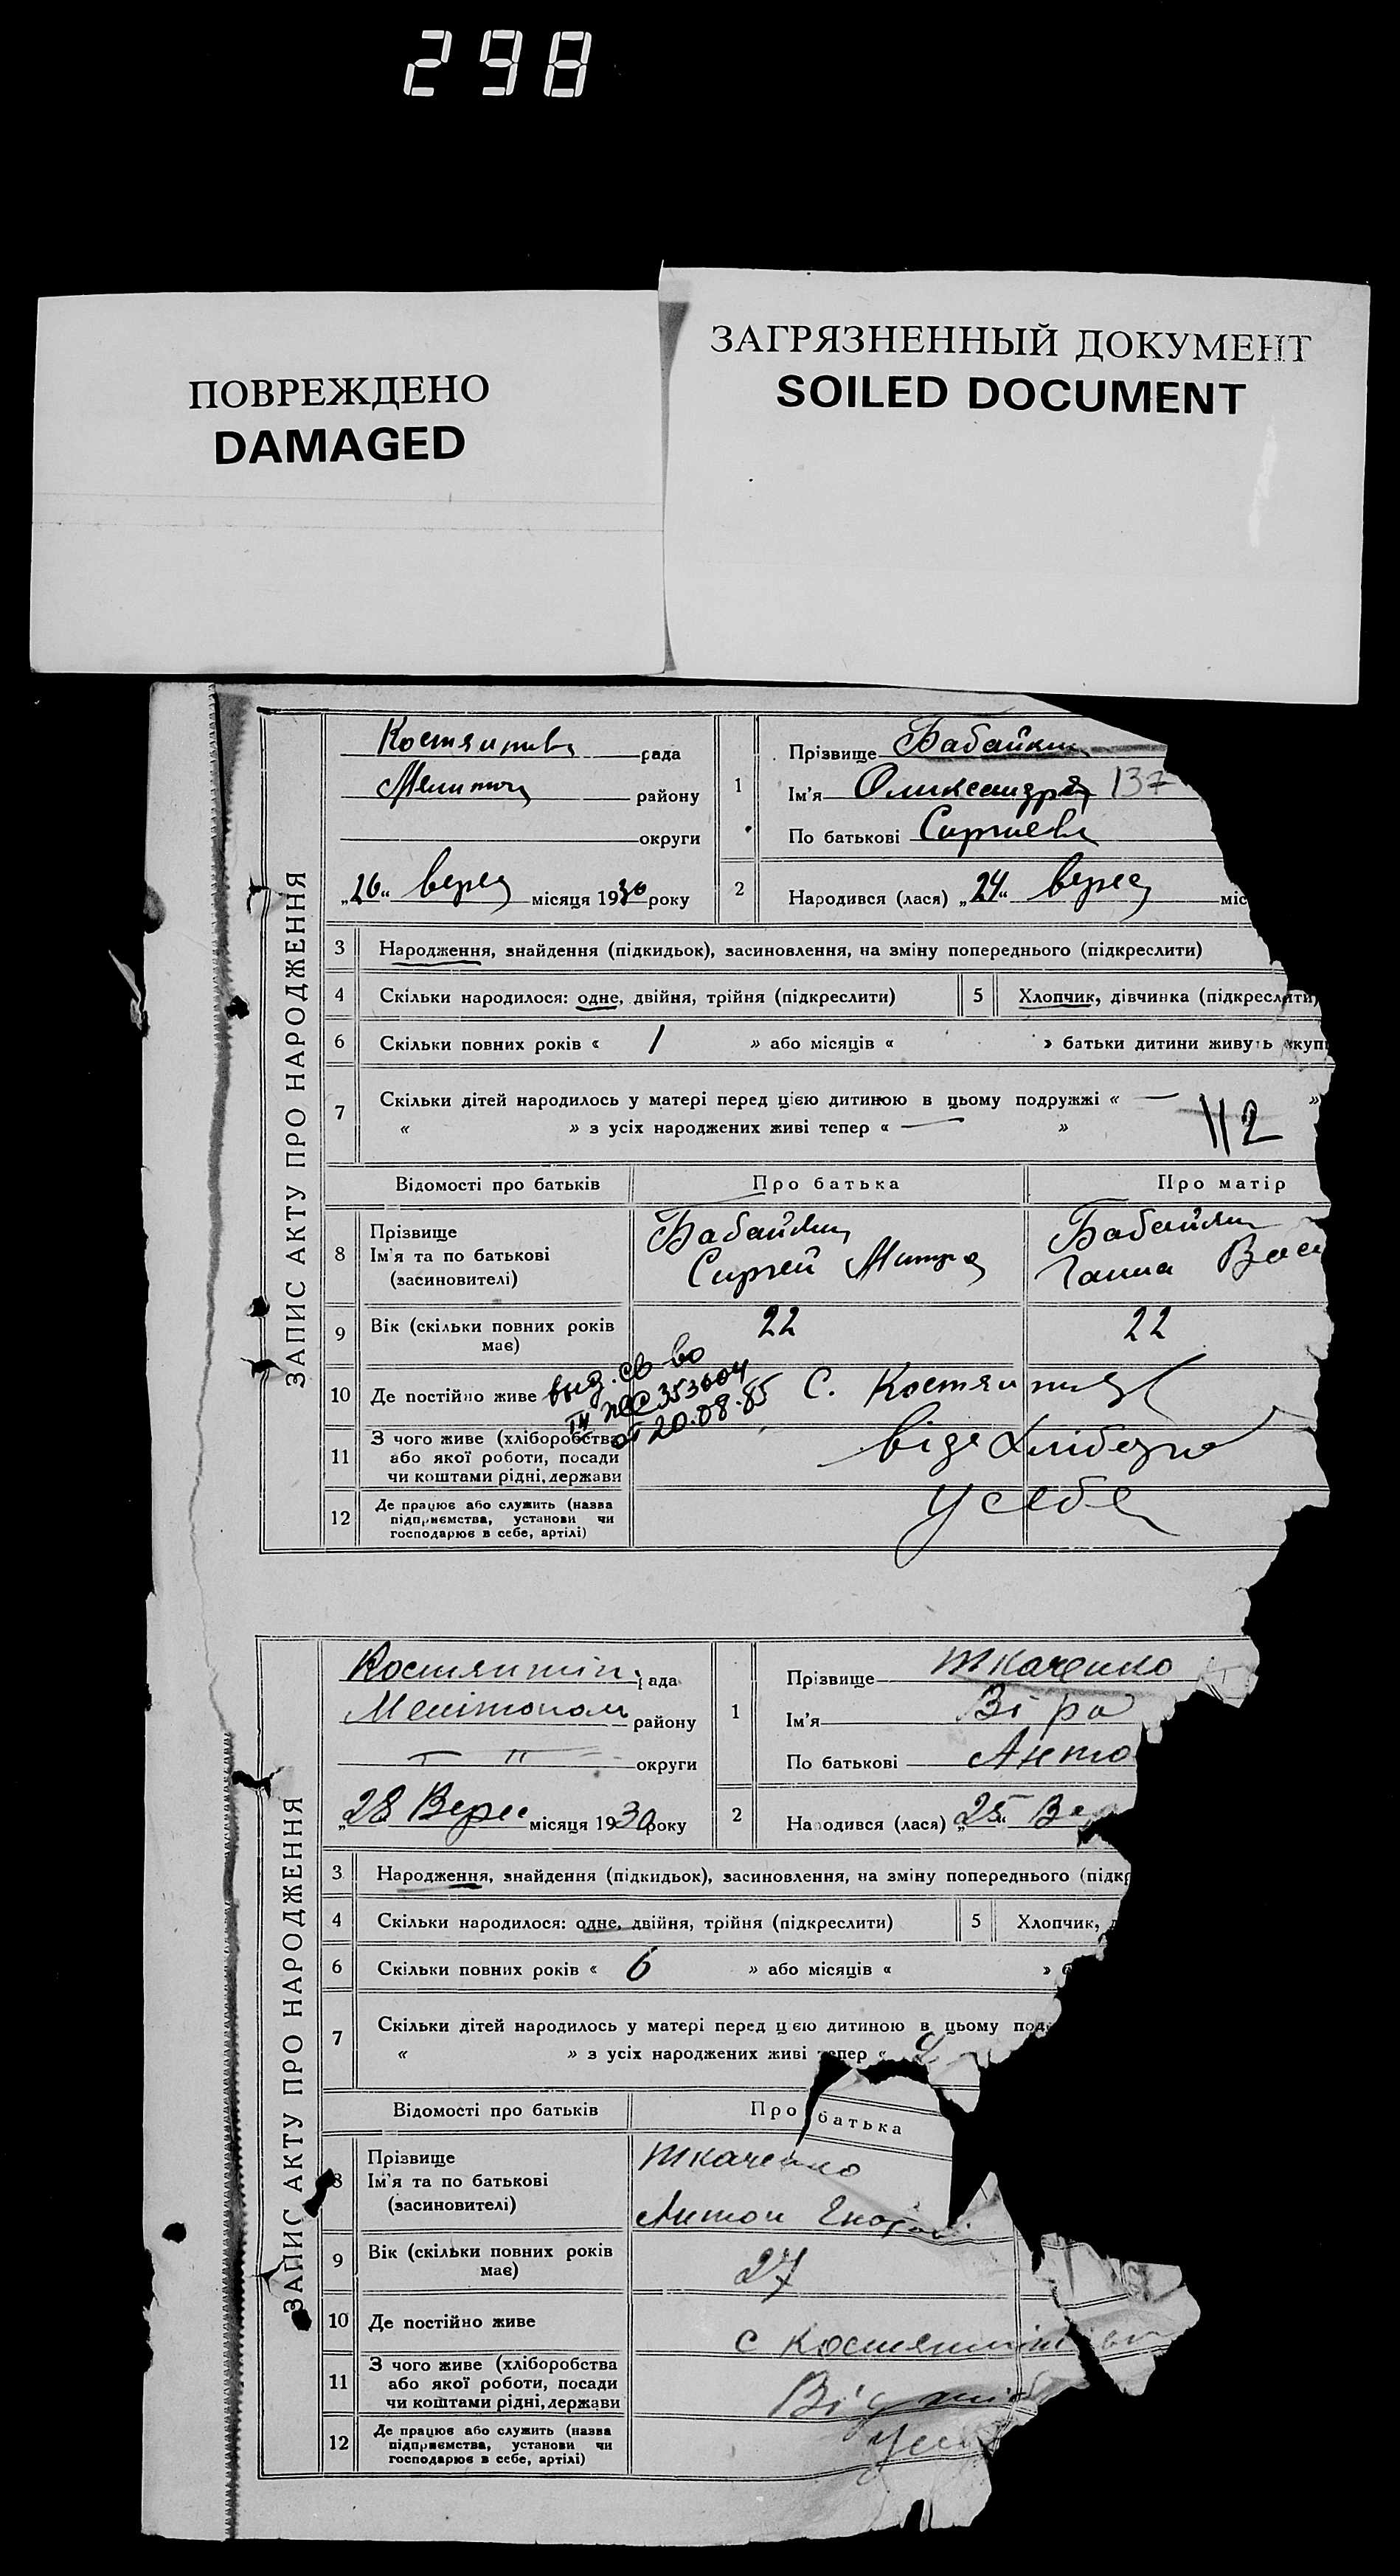 298
ПОВРЕЖДЕНО
DAMAGED
ЗАГРЯЗНЕННЫЙ ДОКУМЕНТ
SOILED DOCUMENT
ЗАПИС АКТУ ПРО НАРОДЖЕННЯ
рада
району
округи
„26“ верес місяця 1930 року
1
Прізвище
Ім'я Олександр 137
По батькові
2 Народився (лася) „24“ верес міс
3 Народження, знайдення (підкидьок), засиновлення, на зміну попереднього (підкреслити)
4 Скільки народилося: одне, двійня, трійня (підкреслити) 5 Хлопчик, дівчинка (підкреслити)
6 Скільки повних років « 1 » або місяців « » батьки дитини живуть вкупі
7 Скільки дітей народилось у матері перед цією дитиною в цьому подружжі « — »
« » з усіх народжених живі тепер « — »
112
Відомості про батьків Про батька Про матір
8 Прізвище
Ім'я та по батькові
(засиновителі)
Сергей
Ганна
9 Вік (скільки повних років має) 22 22
10 Де постійно живе
выд. св-во
от 20.08.85
с.
11 З чого живе (хліборобства
або якої роботи, посади
чи коштами рідні, держави
12 Де працює або служить (назва
підприємства, установи чи
господарює в себе, артілі)
у себе
ЗАПИС АКТУ ПРО НАРОДЖЕННЯ
Костянтин. рада
Мелітополь району
— " — округи
„28 Верес місяця 1930 року
1
Прізвище Ткаченко
Ім'я Віра
По батькові Анто
2 Народився (лася) „25“ Ве
3 Народження, знайдення (підкидьок), засиновлення, на зміну попереднього (підкр
4 Скільки народилося: одне, двійня, трійня (підкреслити) 5 Хлопчик,
6 Скільки повних років « 6 » або місяців « »
7 Скільки дітей народилось у матері перед цією дитиною в цьому под
« » з усіх народжених живі тепер «
Відомості про батьків Про батька
8 Прізвище
Ім'я та по батькові
(засиновителі)
Ткаченко
Антон
9 Вік (скільки повних років має) 27
10 Де постійно живе с
11 З чого живе (хліборобства
або якої роботи, посади
чи коштами рідні, держави
Від
12 Де працює або служить (назва
підприємства, установи чи
господарює в себе, артілі)